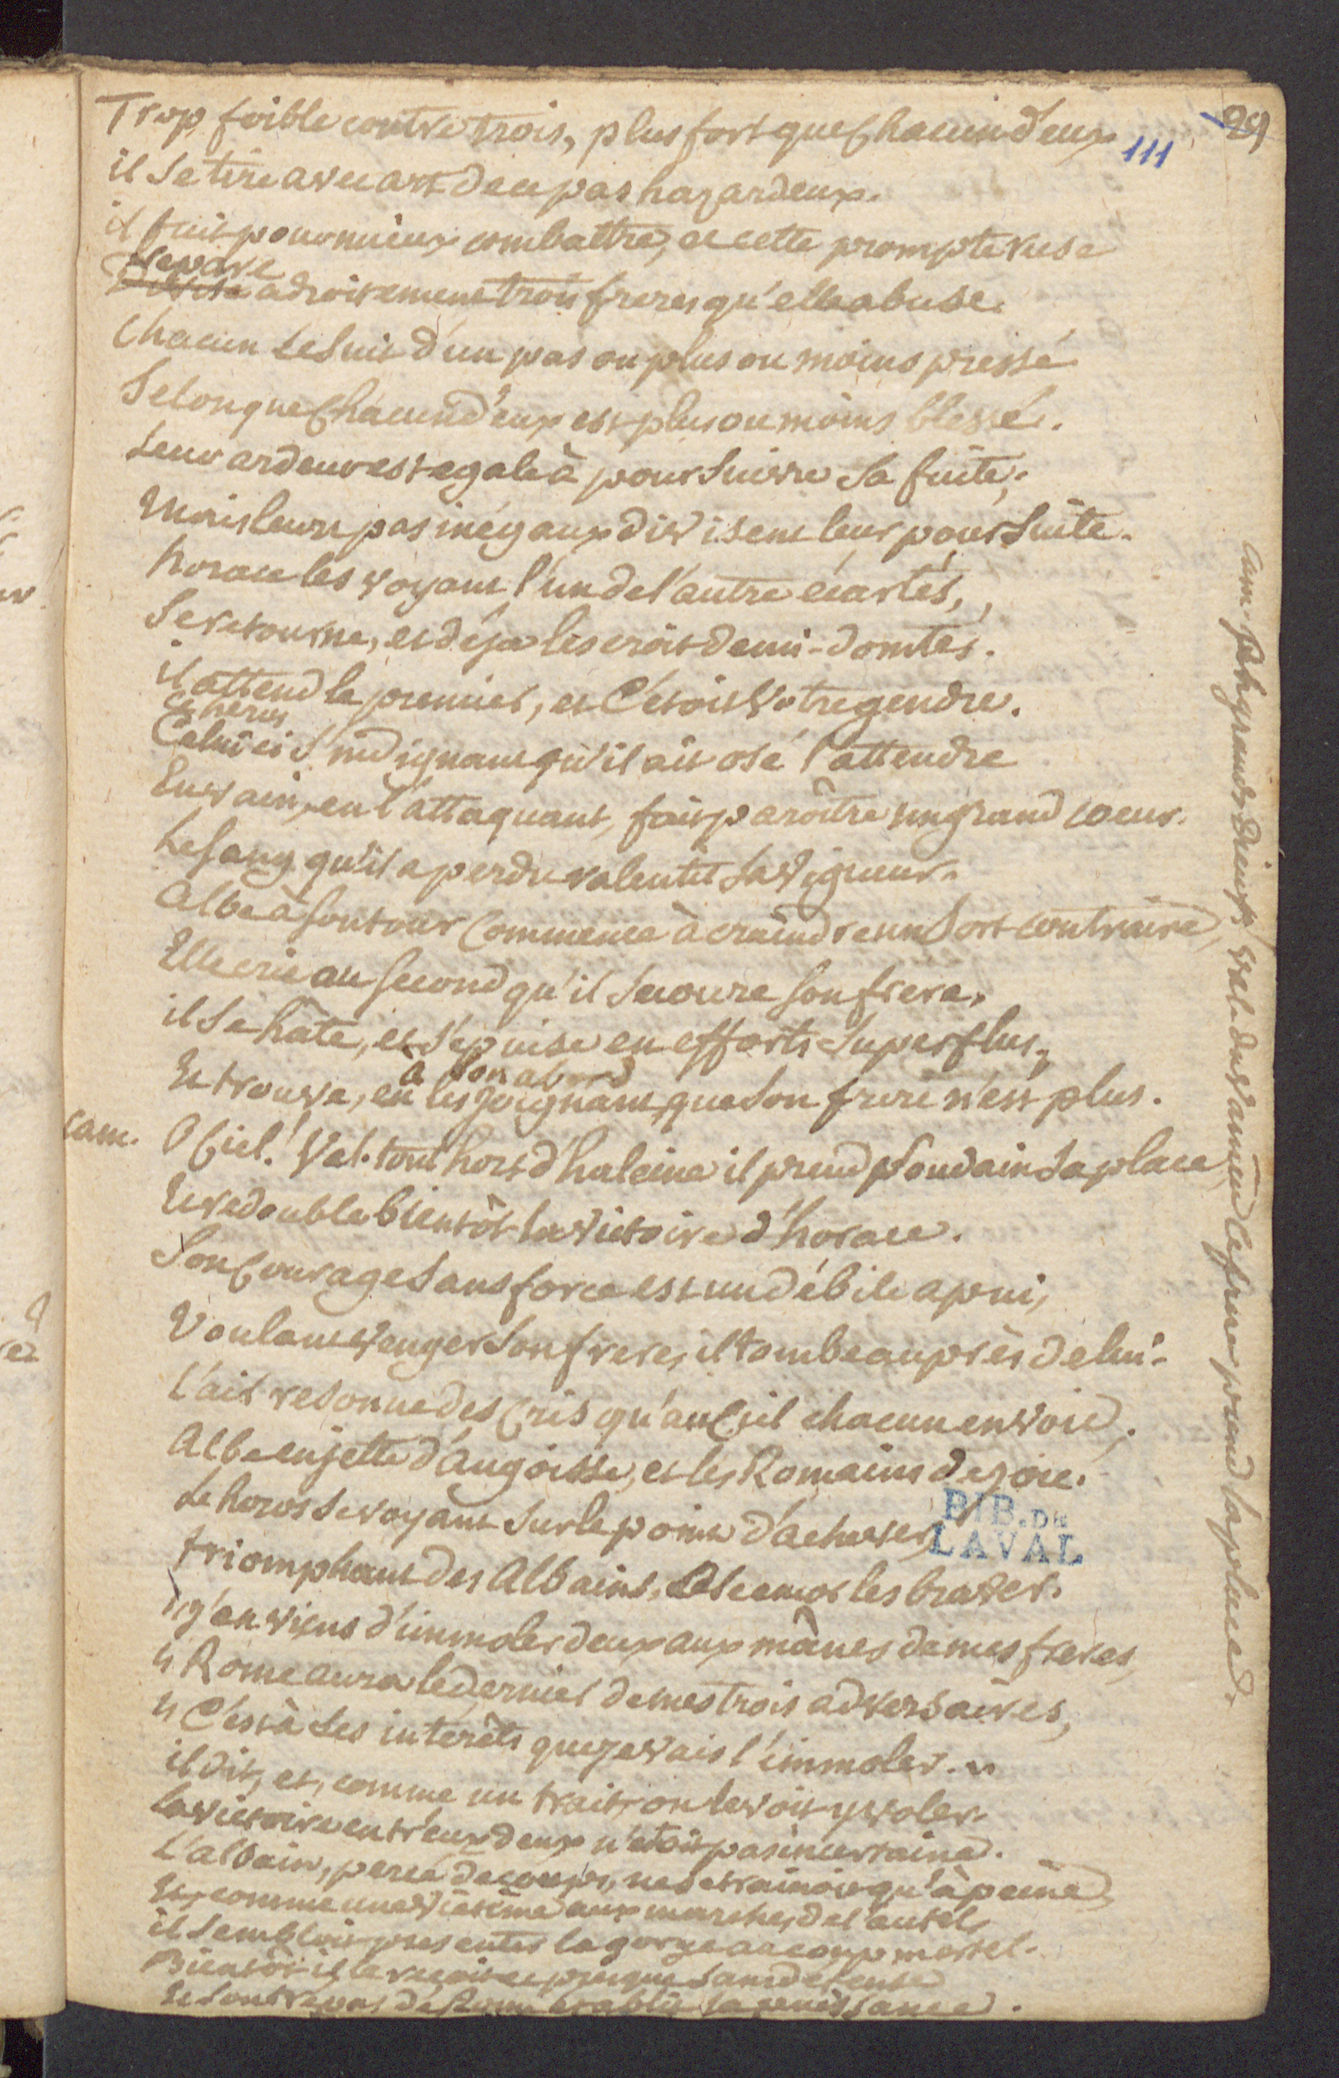 99
111
Trop foible contre trois, plus fort que Chacun d'eux
il se tire avec art de ce pas hazardeux.
il fuit pour mieux combattre, et cette prompte ruse
separe
Divise adroitement trois freres qu'elle abuse.
Chacun le suit d'un pas ou plus ou moins pressé
Selon que Chacun d'eux est plus ou moins blessé.
Leur ardeur est egale à poursuivre sa fuite,
Mais leurs pas inégaux divisent leur poursuite.
horace les voyant l'un de l'autre écartés,
Se retourne, et déja les croit demi-domtés.
il attend le premier, et C'étoit Votre gendre.
Ce heros
Celui ci s'indignant qu'il ait osé l'attendre
En vain, en l'attaquant, fait paroître un grand coeur.
Le sang qu'il a perdu ralentit sa vigueur.
Albe à son tour Commence à craindre un Sort contraire,
Elle crie au second qu'il secoure son frere.
il se hâte, et s'épuise en efforts superflus,
à son abord
Et trouve, en les joignant, que son frere n'est plus.
Cam. O Ciel! Val. tout hors d'haleine il prend soudain sa place,
Et redouble bientôt la victoire d'horace.
Son Courage sans force est un débile apui,
Voulant venger son frere, il tombe auprès de lui.
L'air resonne des Cris qu'au Ciel chacun envoie,
Albe en jette d'angoisse, et les Romains de joie.
Le heros se voyant sur le point d'achever,
triomphant des Albains, ose encor les braver.
"j'en viens d'immoler deux aux mânes de mes freres,
" Rome aura le dernier de mes trois adversaires,
" C'est à ses interêts que je vais l'immoler. "
il dit, et, comme un trait, on le voit y voler.
La victoire entr'eux deux n'étoit pas incertaine.
L'albain, percé de coups, ne se trainoit qu'à peine,
Et, comme une victime aux marches de l'autel,
il sembloit presenter la gorge au coup mortel.
Bientôt il le reçoit presque sans défense
Et son trepas de Rome établit la puissance.
BIB. DE
LAVAL
Cam. grands Dieux! Val. du vaincu le frere prend la place